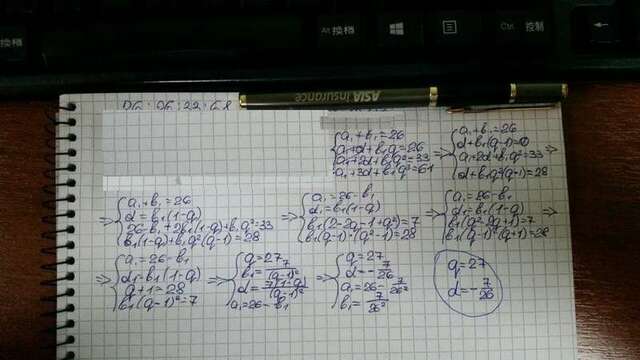 Alt 换档
Ctrl 控制
换档
ASIA insurance
26; 26; 33; 61
{a₁+b₁=26
a₁+d+b₁q=26
a₁+2d+b₁q²=33
a₁+3d+b₁q³=61
{a₁+b₁=26
d+b₁(q-1)=0
a₁+2d+b₁q²=33 =>
=> {a₁+b₁=26
d=b₁(1-q)
=> {a₁=26-b₁
d=b₁(1-q)
b₁(2-2q-1+q²)=7
b₁(q-1)·(q²-1)=28
=> {a₁=26-b₁
d=b₁(1-q)
b₁(q²-2q+1)=7
b₁(q-1)²(q+1)=28 =>
=> {a₁=26-b₁
d=b₁(1-q)
q+1=28
b₁(q-1)²=7
=> {q=27
b₁=7/(q-1)²
d=7(1-q)/(q-1)²
a₁=26-b₁
=> {q=27
d=-7/26
a₁=26-7/26²
b₁=7/26²
q=27
d=-7/26